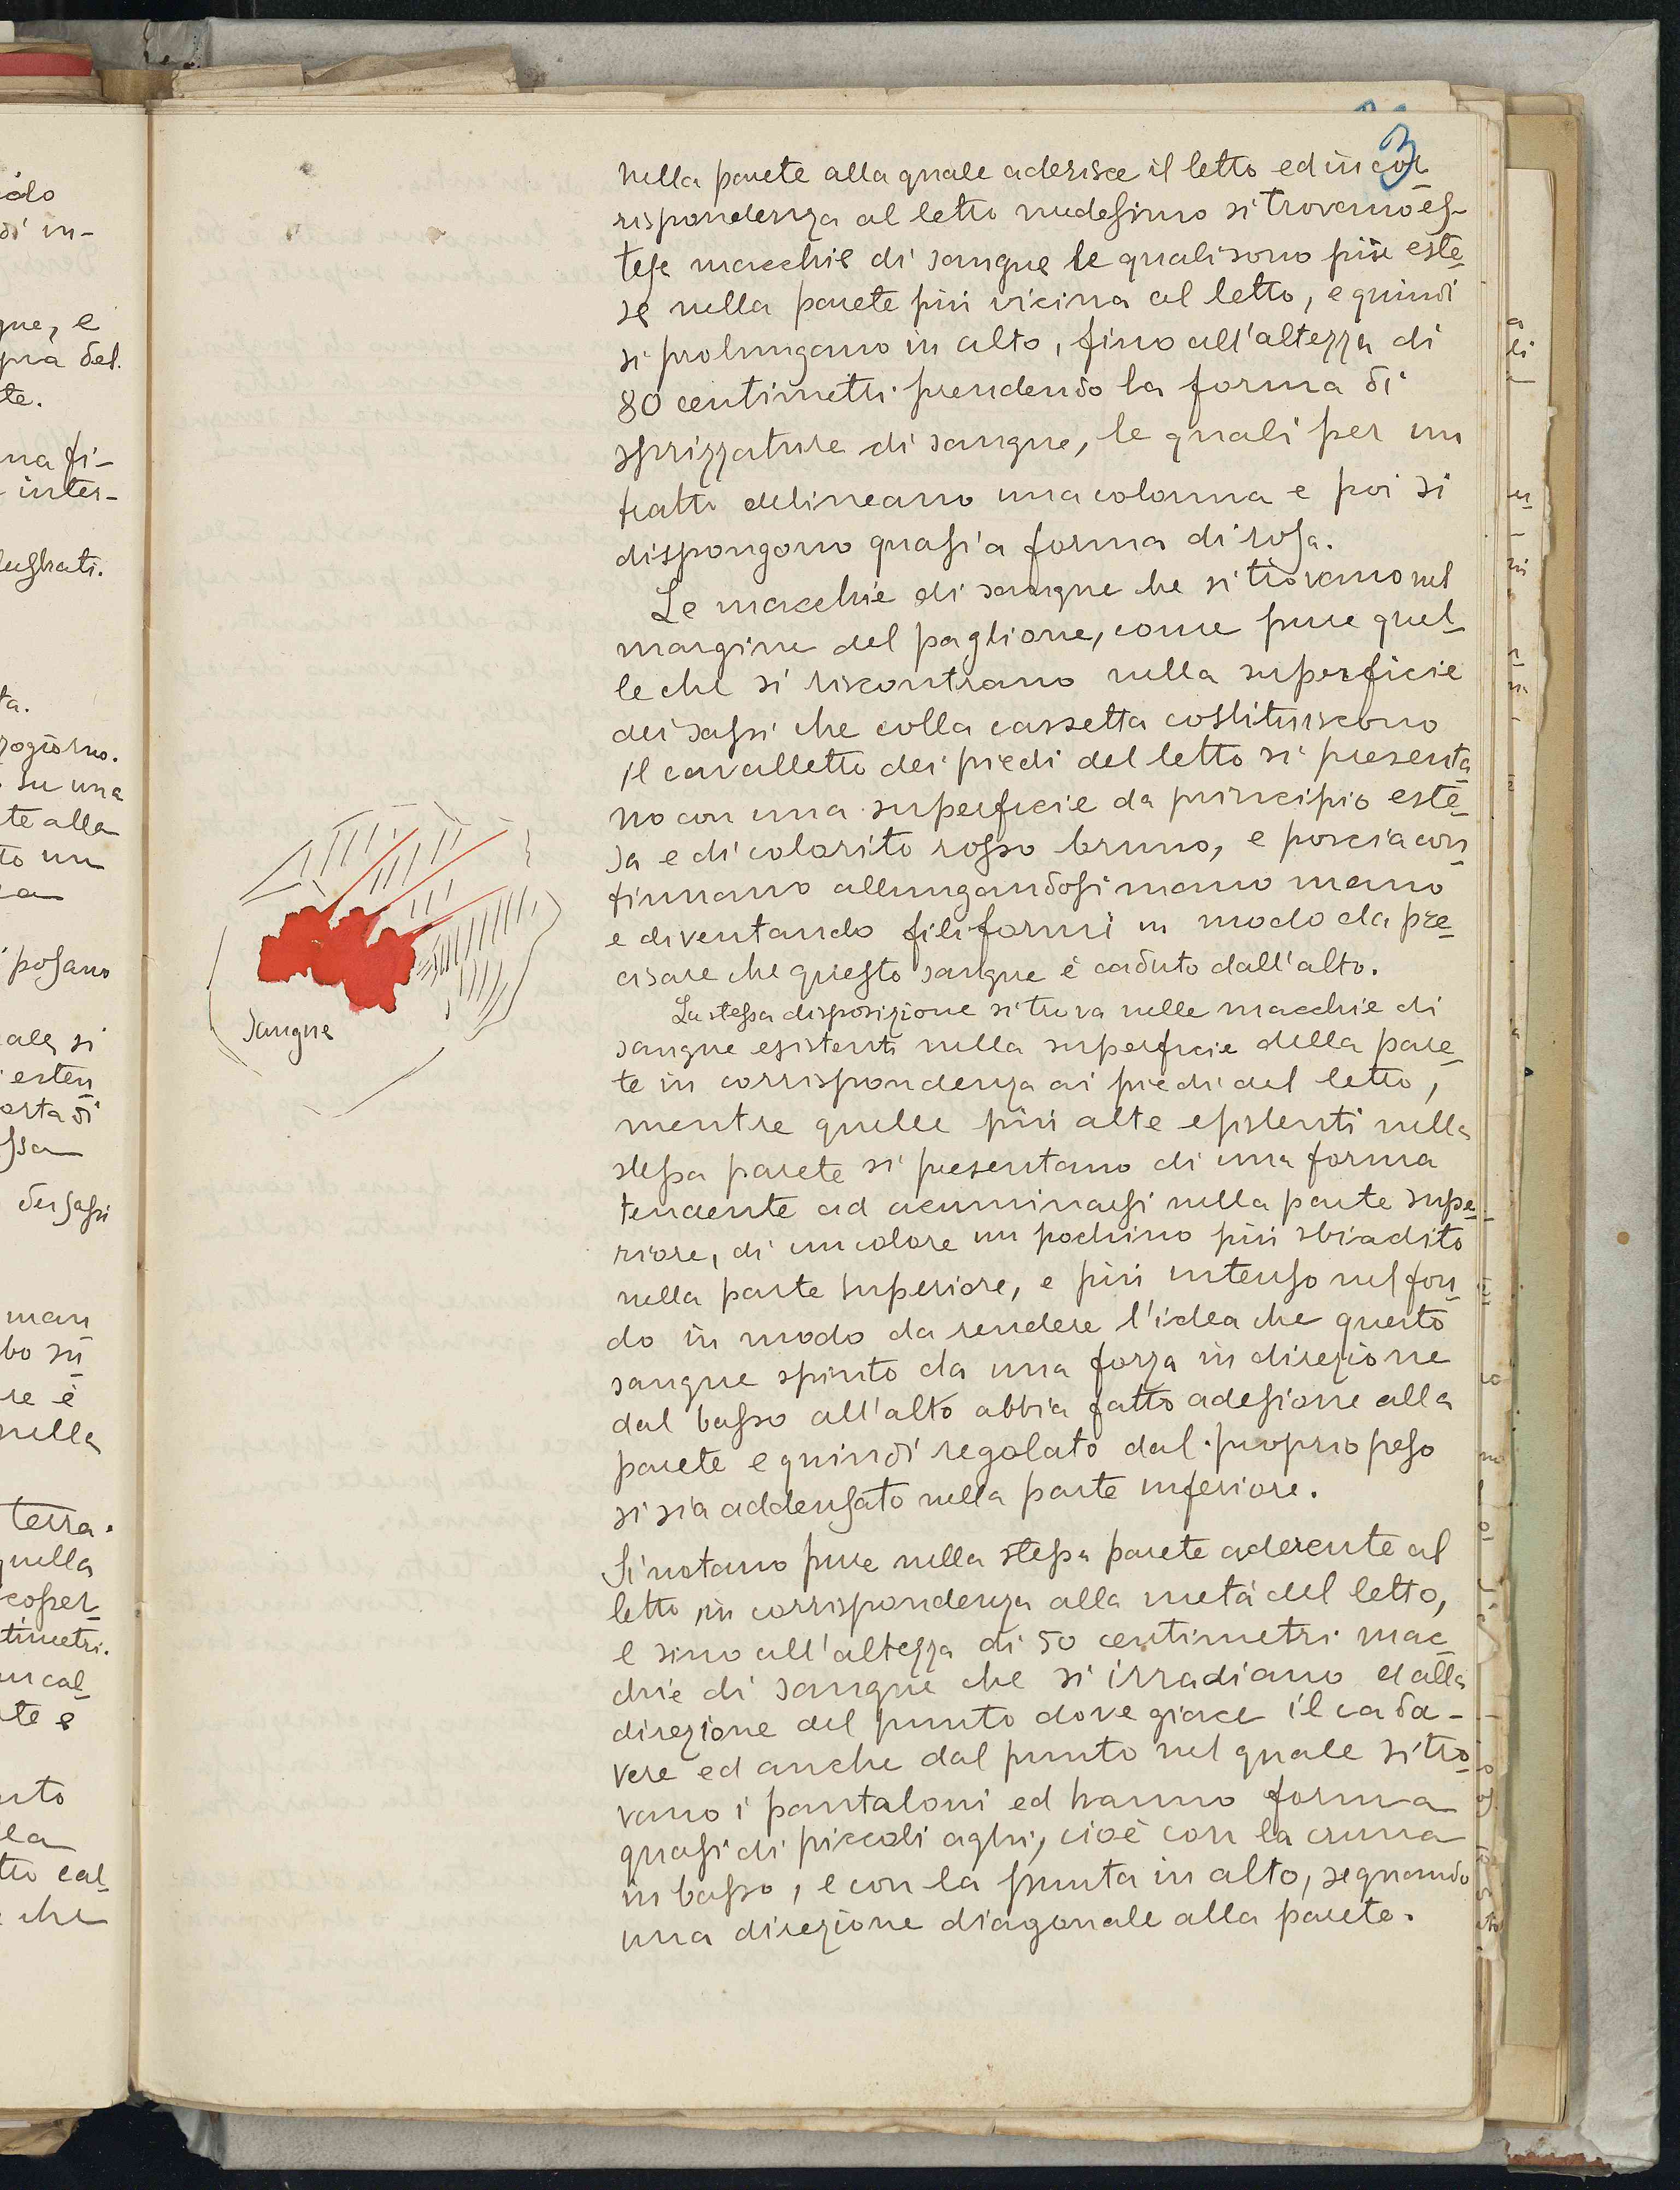 3
nella parete alla quale aderisce il letto ed in cor
rispondenza al letto medesimo si trovano es-
tese macchie di sangue le quali sono più este
se nella parete più vicina al letto, e quindi
si prolungano in alto, fino all'altezza di
80 centimetri prendendo la forma di
sprizzature di sangue, le quali per un
tratto delineano una colonna e poi si
dispongono quasi a forma di rosa.
Le macchie di sangue che si trovano nel
margine del paglione, come pure quel
le che si riscontrano nella superficie
dei sassi che colla cassetta costituiscono
il cavalletto dei piedi del letto si presenta
no con una superficie da principio este
sa e di colorito rosso bruno, e poscia con
tinuano allungandosi mano mano
e diventando filiformi in modo da pre
cisare che questo sangue è caduto dall'alto.
Sangue
La stessa disposizione si trova nelle macchie di
sangue esistenti nella superficie della pare
te in corrispondenza ai piedi del letto,
mentre quelle più alte esistenti nella
stessa parete si presentano di una forma
tendente ad acuminarsi nella parte supe
riore, di un colore un pochino più sbiadito
nella parte superiore, e più intenso nel fon
do in modo da rendere l'idea che questo
sangue spinto da una forza in direzione
dal basso all'alto abbia fatto adesione alla
parete e quindi regolato dal proprio peso
si sia addensato nella parte inferiore.
Si notano pure nella stessa parete aderente al
letto, in corrispondenza alla metà del letto,
e sino all'altezza di 50 centimetri mac
chie di sangue che si irradiano dalla
direzione del punto dove giace il cada-
vere ed anche dal punto nel quale si tro
vano i pantaloni ed hanno forma
quasi di piccoli aghi, cioè con la cruna
in basso, e con la punta in alto, segnando
una direzione diagonale alla parete.